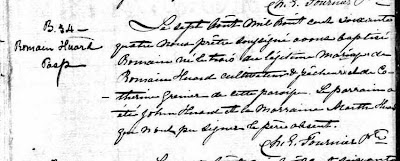 Ch. G. Fournier Ptr.
B. 34
Romain Huard
Pasp
Le sept Aout mil huit cent soixante
quatre nous prêtre soussigné avons baptisé
Romain né le trois du légitime mariage de
Romain Huard cultivateur & pêcheur et de Ca-
therine Grenier de cette paroisse. Le parrain a
été John Huard et la marraine Marthe Huard
qui n'ont pu signer le père absent.
Ch. G. Fournier Ptr.